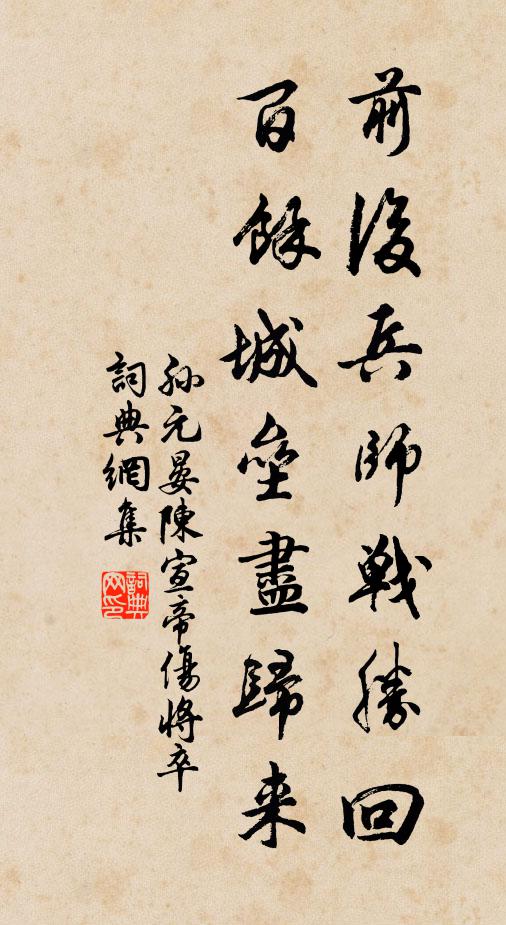 前後兵師戰勝回
百餘城壘盡歸来
孫元晏陳宣帝傷將卒
詞典網集
詞典网印